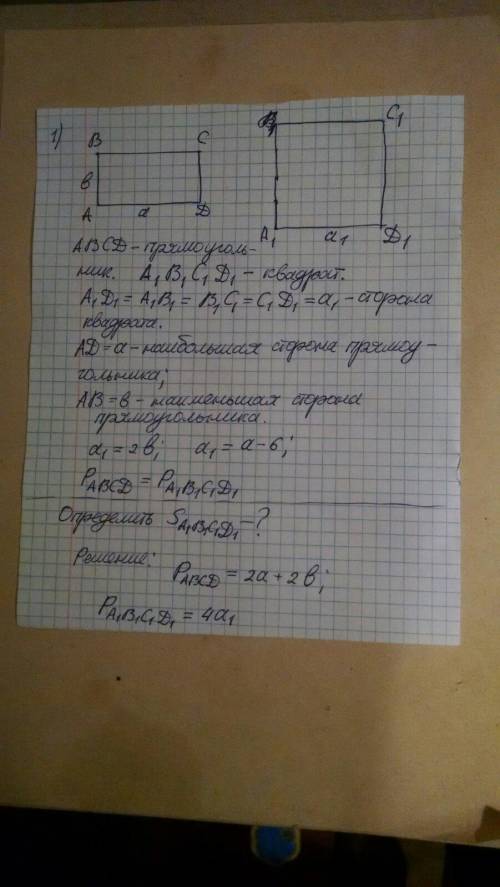 1)
B C
в
A a D
B₁ C₁
A₁ a₁ D₁
ABCD - прямоуголь-
ник. A₁ B₁ C₁ D₁ - квадрат.
A₁D₁ = A₁B₁ = B₁C₁ = C₁D₁ = a₁ - сторона
квадрата.
AD = a - наибольшая сторона прямоу-
гольника;
AB = в - наименьшая сторона
прямоугольника.
a₁ = 2в; a₁ = a - 6;
P ABCD = P A₁B₁C₁D₁
Определить S A₁B₁C₁D₁ - ?
Решение:
P ABCD = 2a + 2в;
P A₁B₁C₁D₁ = 4a₁